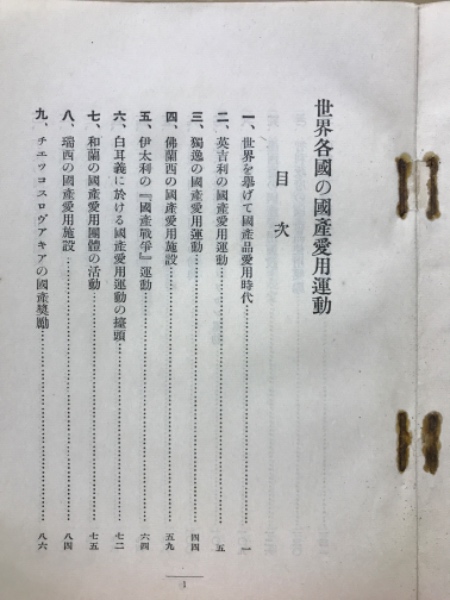 世界各國の國產愛用運動
目次
一、世界を擧げて國產品愛用時代……一
二、英吉利の國產愛用運動……五
三、獨逸の國產愛用運動……四四
四、佛蘭西の國產愛用施設……五九
五、伊太利の『國產戰爭』運動……六四
六、白耳義に於ける國產愛用運動の擡頭……七二
七、和蘭の國產愛用團體の活動……七五
八、瑞西の國產愛用施設……八四
九、チエツコスロヴアキアの國產奬勵……八六
1